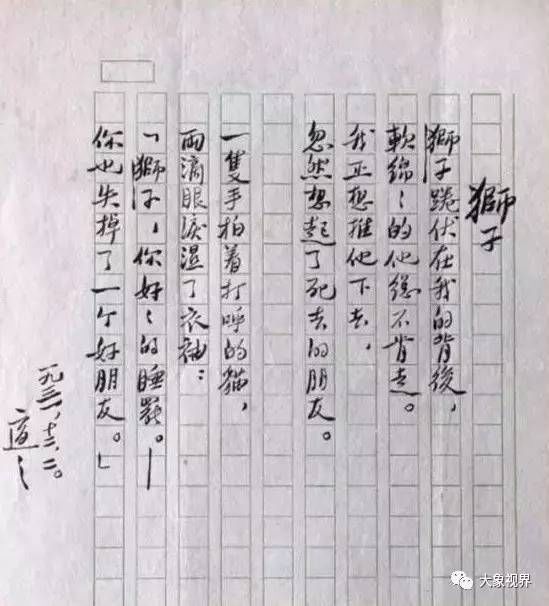 獅子
獅子踡伏在我的背後，
軟綿〻的他總不肯走。
我正想推他下去，
忽然想起了死去的朋友。
一隻手拍着打呼的貓，
兩滴眼淚濕了衣袖：
「獅子，你好〻的睡罷。—
你也失掉了一个好朋友。」
一九三一，十二，二。
適之
大象视界